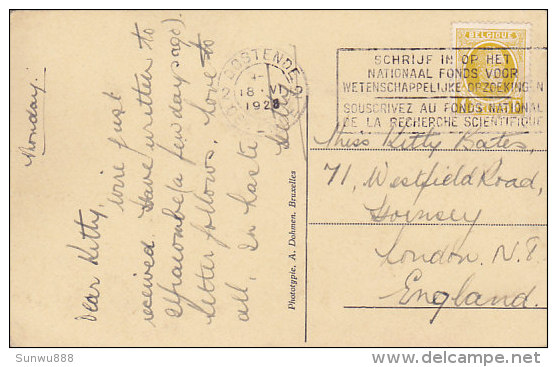 Monday.
Dear Kitty,
Wire just
received. Have written to
Ilfracombe (a few days ago).
Letter follows. Love to
all. In haste,
OOSTENDE
18 VI
1928
BELGIQUE
SCHRIJF IN OP HET
NATIONAAL FONDS VOOR
WETENSCHAPPELIJKE OPZOEKINGEN
SOUSCRIVEZ AU FONDS NATIONAL
DE LA RECHERCHE SCIENTIFIQUE
Miss Kitty Bates,
71, Westfield Road,
Hornsey
London. N.8
England.
Phototypie, A. Dohmen, Bruxelles
Sunwu888
delcampe.net